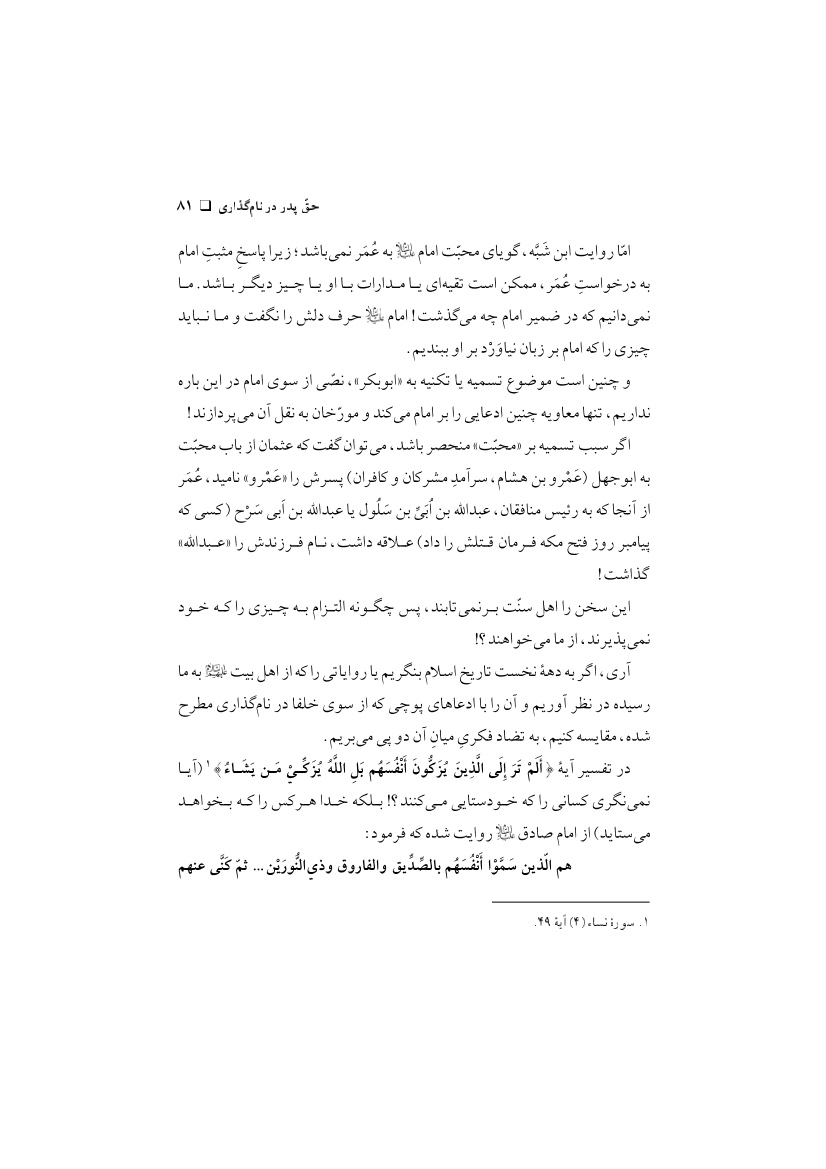 حقّ پدر در نام‌گذاری ❏ ۸۱
امّا روایت ابن شَبَّه، گویای محبّت امام علیه‌السلام به عُمَر نمی‌باشد؛ زیرا پاسخِ مثبتِ امام
به درخواستِ عُمَر، ممکن است تقیه‌ای یا مدارات با او یا چیز دیگر باشد. ما
نمی‌دانیم که در ضمیر امام چه می‌گذشت! امام علیه‌السلام حرف دلش را نگفت و ما نباید
چیزی را که امام بر زبان نیاوَرْد بر او ببندیم.
و چنین است موضوع تسمیه یا تکنیه به «ابوبکر»، نصّی از سوی امام در این باره
نداریم، تنها معاویه چنین ادعایی را بر امام می‌کند و مورّخان به نقل آن می‌پردازند!
اگر سبب تسمیه بر «محبّت» منحصر باشد، می‌توان گفت که عثمان از باب محبّت
به ابوجهل (عَمْرو بن هشام، سرآمدِ مشرکان و کافران) پسرش را «عَمْرو» نامید، عُمَر
از آنجا که به رئیس منافقان، عبدالله بن اُبَیِّ بن سَلُول یا عبدالله بن اَبی سَرْح (کسی که
پیامبر روز فتح مکه فرمان قتلش را داد) علاقه داشت، نام فرزندش را «عبدالله»
گذاشت!
این سخن را اهل سنّت برنمی‌تابند، پس چگونه التزام به چیزی را که خود
نمی‌پذیرند، از ما می‌خواهند؟!
آری، اگر به دههٔ نخست تاریخ اسلام بنگریم یا روایاتی را که از اهل بیت علیهم‌السلام به ما
رسیده در نظر آوریم و آن را با ادعاهای پوچی که از سوی خلفا در نام‌گذاری مطرح
شده، مقایسه کنیم، به تضاد فکریِ میانِ آن دو پی می‌بریم.
در تفسیر آیهٔ ﴿أَلَمْ تَرَ إِلَى الَّذِينَ يُزَكُّونَ أَنْفُسَهُم بَلِ اللَّهُ يُزَكِّيْ مَن يَشَاءُ﴾ ۱ (آیا
نمی‌نگری کسانی را که خودستایی می‌کنند؟! بلکه خدا هرکس را که بخواهد
می‌ستاید) از امام صادق علیه‌السلام روایت شده که فرمود:
هم الّذین سَمَّوْا أَنْفُسَهُم بالصِّدِّیق والفاروق وذي‌النُّورَیْن... ثمّ کَنَّی عنهم
۱. سورهٔ نساء (۴) آیهٔ ۴۹.